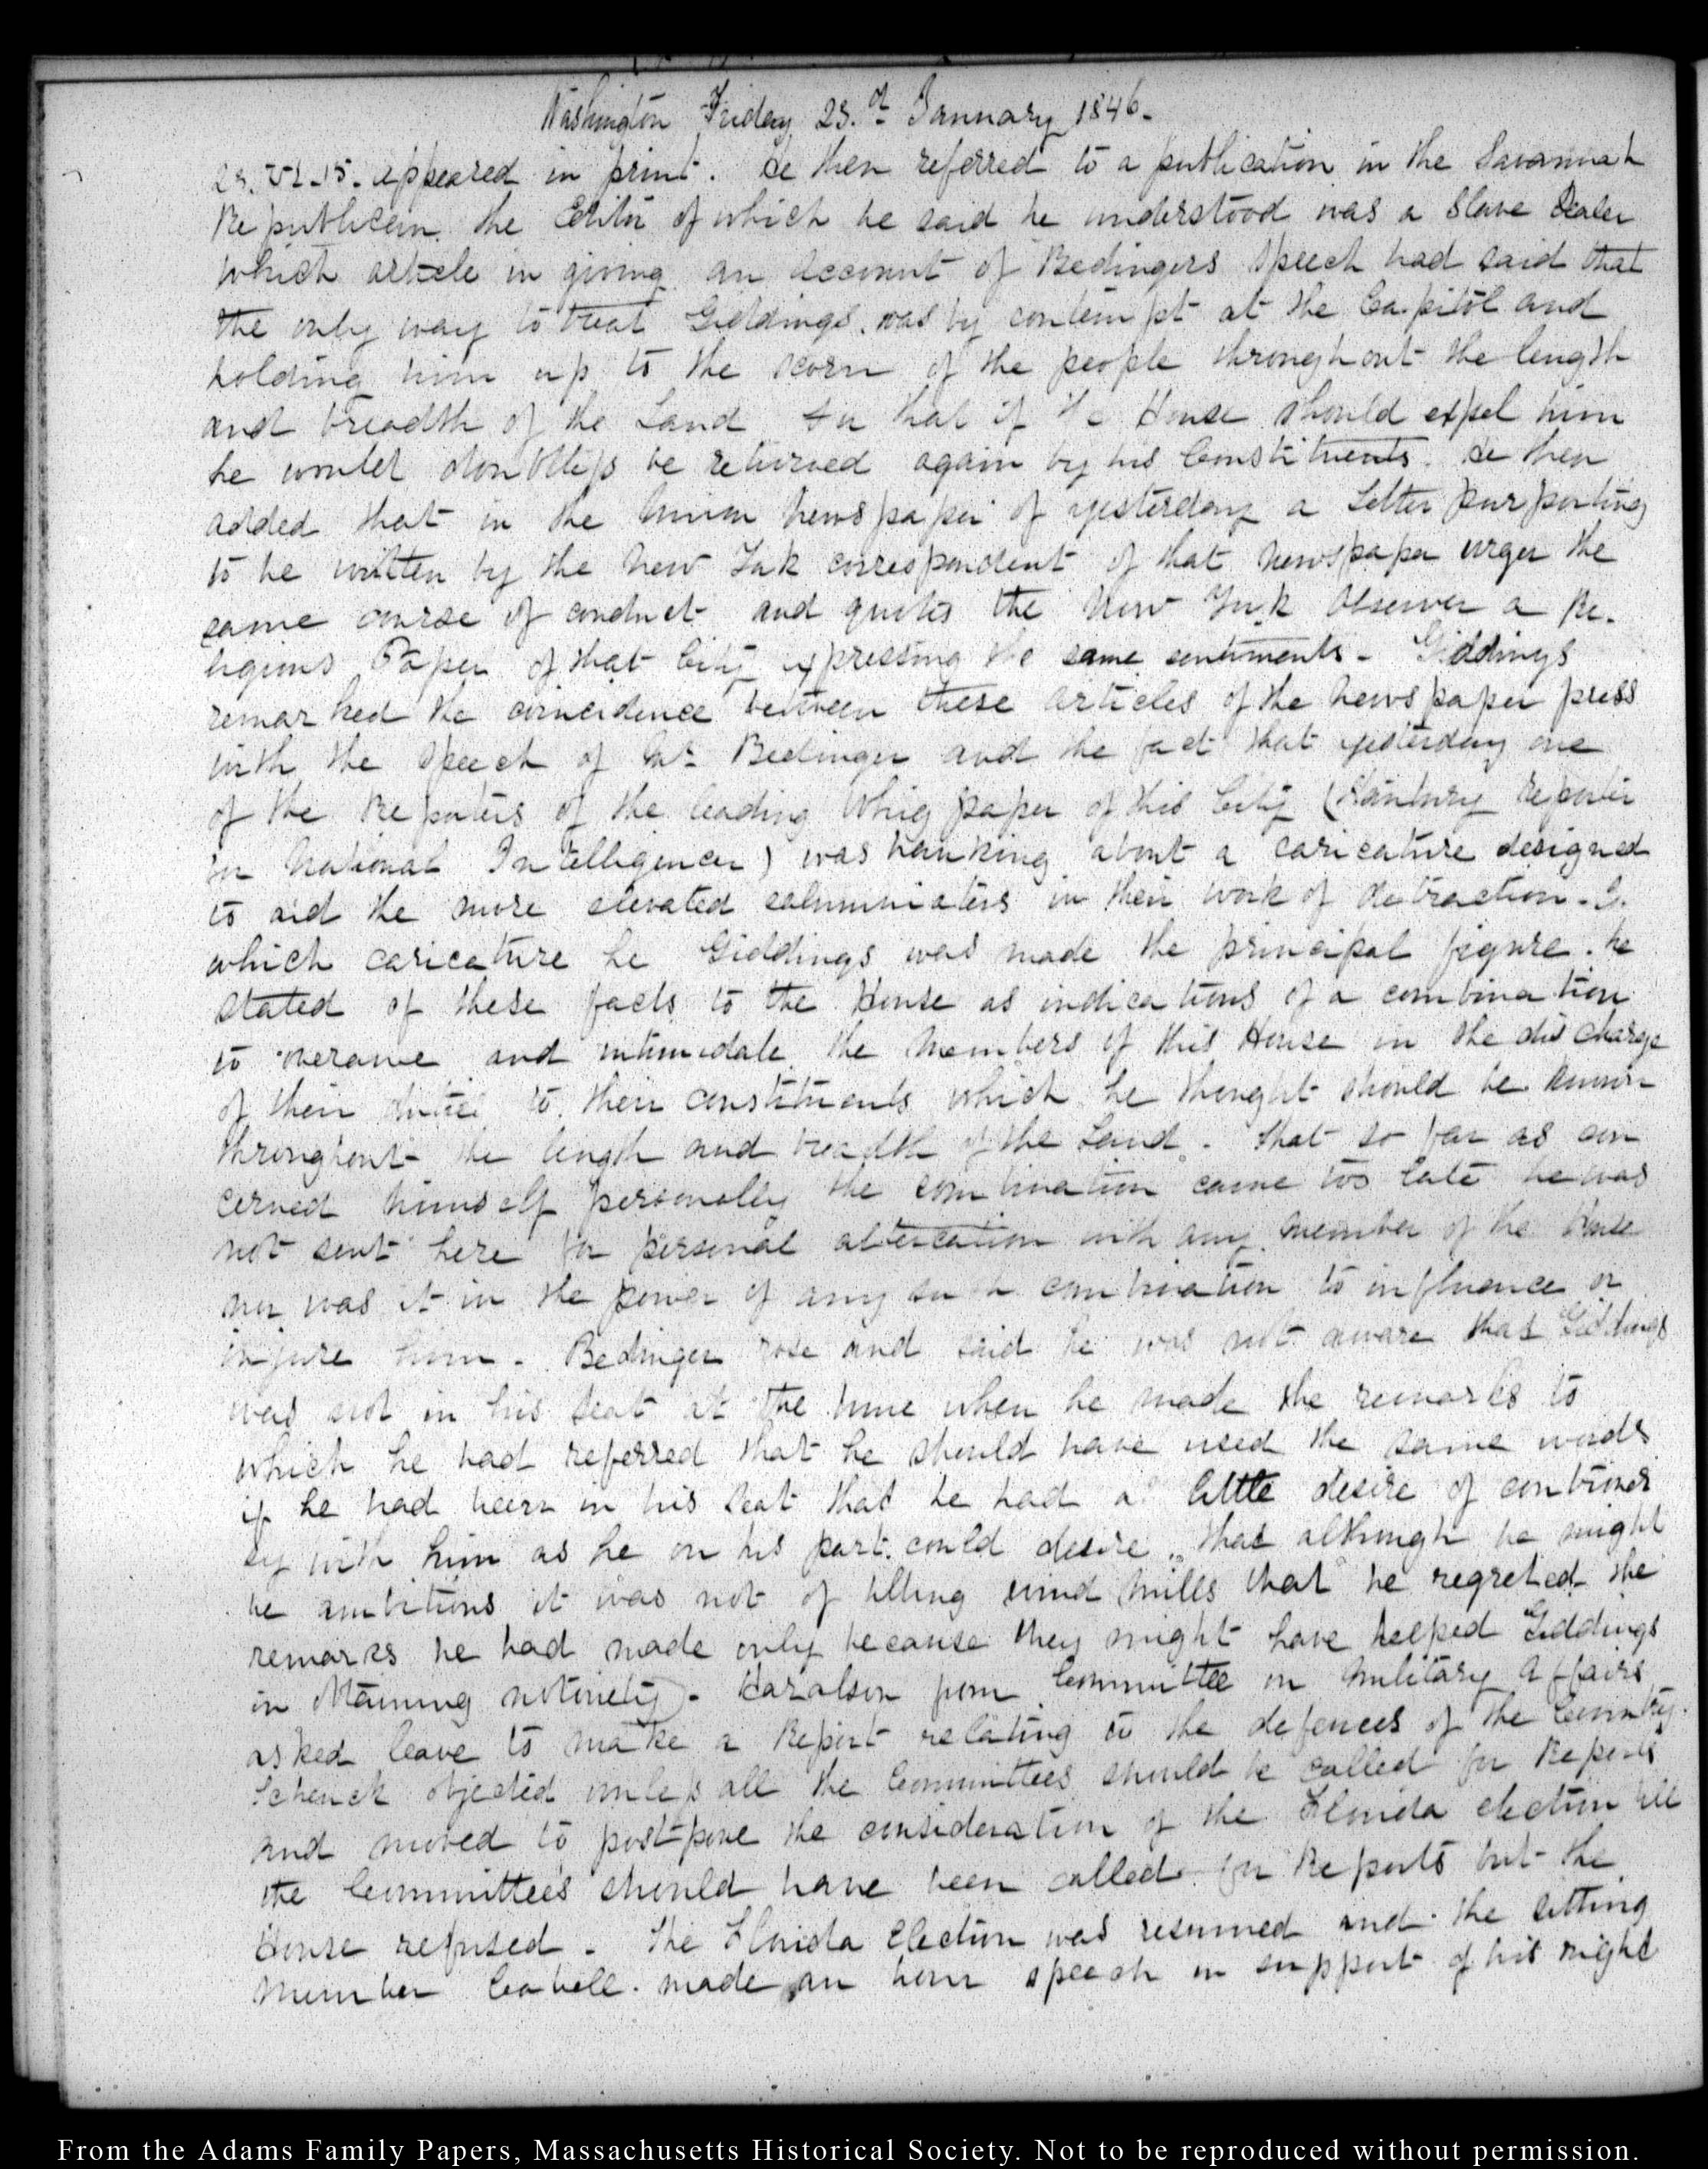 Washington Friday 23.d January 1846.
23. VI.15. appeared in print. He then referred to a publication in the Savannah
Republican the Editor of which he said he understood was a Slave Dealer
which article in giving an account of Bedingers speech had said that
the only way to treat Giddings was by contempt at the Capitol and
holding him up to the scorn of the people throughout the length
and breadth of the Land for that if the House should expel him
he would doubtless be returned again by his Constituents. He then
added that in the Union Newspaper of yesterday a Letter purporting
to be written by the New York correspondent of that Newspaper urges the
same course of conduct and quotes the New York Observer a Re-
ligious Paper of that City expressing the same sentiments - Giddings
remarked the coincidence between these articles of the newspaper press
with the speech of Mr. Bedinger and the fact that yesterday one
of the Reporters of the leading Whig paper of this City (Stansbury reporter
for National Intelligencer) was hawking about a caricature designed
to aid the more elevated calumniators in their work of detraction. In
which caricature he Giddings was made the principal figure. he
stated of these facts to the House as indications of a combination
to overawe and intimidate the Members of this House in the discharge
of their duties to their constituents which he thought should be known
throughout the length and breadth of the Land. That so far as con
cerned himself personally the combination came too late he was
not sent here for personal altercation with any member of the House
nor was it in the power of any such combination to influence or
injure him - Bedinger rose and said he was not aware that Giddings
was not in his seat at the time when he made the remarks to
which he had referred that he should have used the same words
if he had been in his seat that he had a little desire of controver
sy with him as he on his part could desire, that although he might
be ambitious it was not of tilting wind mills that he regretted the
remarks he had made only because they might have helped Giddings
in obtaining notoriety - Haralson from Committee on Military Affairs
asked leave to make a Report relating to the defences of the Country.
Schenck objected unless all the Committees should be called for Reports
and moved to postpone the consideration of the Florida election till
the Committees should have been called for Reports but the
House refused - The Florida Election was resumed and the sitting
Member Cabell made an hour speech in support of his right
From the Adams Family Papers, Massachusetts Historical Society. Not to be reproduced without permission.